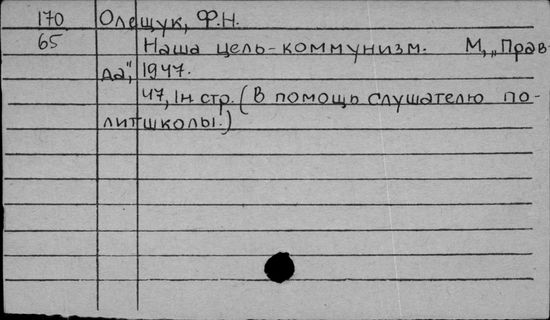 170 Олещук, Ф.Н.
65 Наша цель-коммунизм. М, „Прав-
да", 1947.
47, 1н стр. (В помощь слушателю по-
литшколы.)